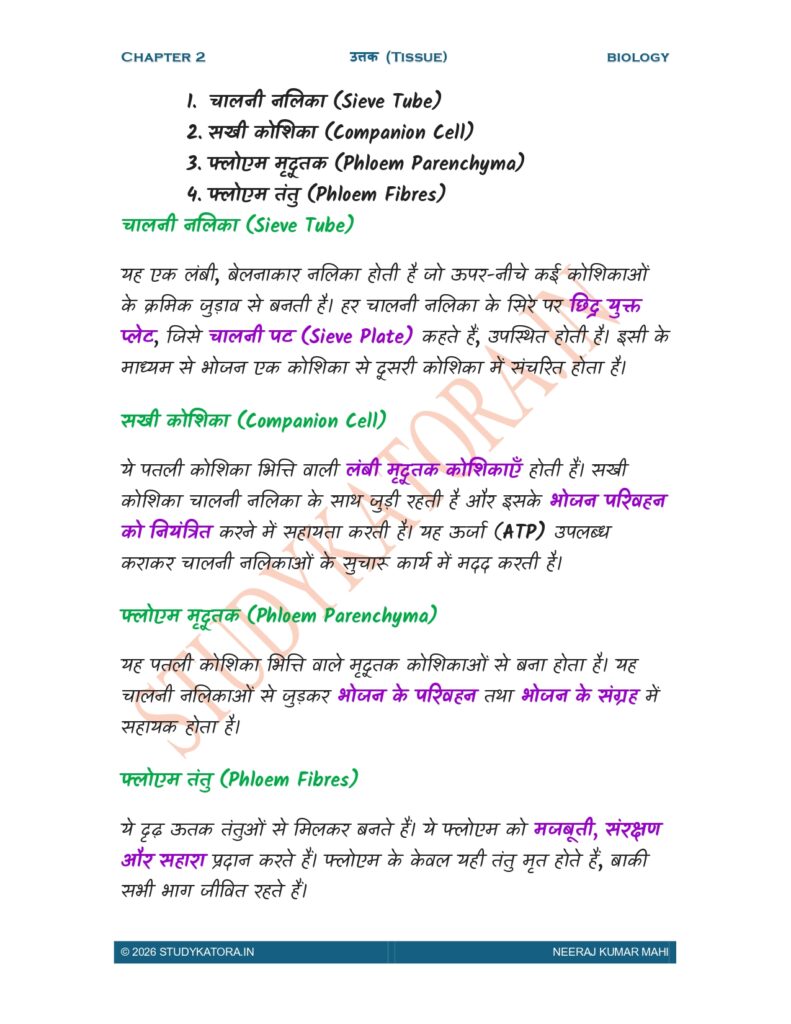 CHAPTER 2 उत्तक (TISSUE) BIOLOGY
1. चालनी नलिका (Sieve Tube)
2. सखी कोशिका (Companion Cell)
3. फ्लोएम मृदूतक (Phloem Parenchyma)
4. फ्लोएम तंतु (Phloem Fibres)
चालनी नलिका (Sieve Tube)
यह एक लंबी, बेलनाकार नलिका होती है जो ऊपर-नीचे कई कोशिकाओं
के क्रमिक जुड़ाव से बनती है। हर चालनी नलिका के सिरे पर छिद्र युक्त
प्लेट, जिसे चालनी पट (Sieve Plate) कहते हैं, उपस्थित होती है। इसी के
माध्यम से भोजन एक कोशिका से दूसरी कोशिका में संचरित होता है।
सखी कोशिका (Companion Cell)
ये पतली कोशिका भित्ति वाली लंबी मृदूतक कोशिकाएँ होती हैं। सखी
कोशिका चालनी नलिका के साथ जुड़ी रहती है और इसके भोजन परिवहन
को नियंत्रित करने में सहायता करती है। यह ऊर्जा (ATP) उपलब्ध
कराकर चालनी नलिकाओं के सुचारू कार्य में मदद करती है।
फ्लोएम मृदूतक (Phloem Parenchyma)
यह पतली कोशिका भित्ति वाले मृदूतक कोशिकाओं से बना होता है। यह
चालनी नलिकाओं से जुड़कर भोजन के परिवहन तथा भोजन के संग्रह में
सहायक होता है।
फ्लोएम तंतु (Phloem Fibres)
ये दृढ़ ऊतक तंतुओं से मिलकर बनते हैं। ये फ्लोएम को मजबूती, संरक्षण
और सहारा प्रदान करते हैं। फ्लोएम के केवल यही तंतु मृत होते हैं, बाकी
सभी भाग जीवित रहते हैं।
STUDYKATORA.IN
© 2026 STUDYKATORA.IN NEERAJ KUMAR MAHI